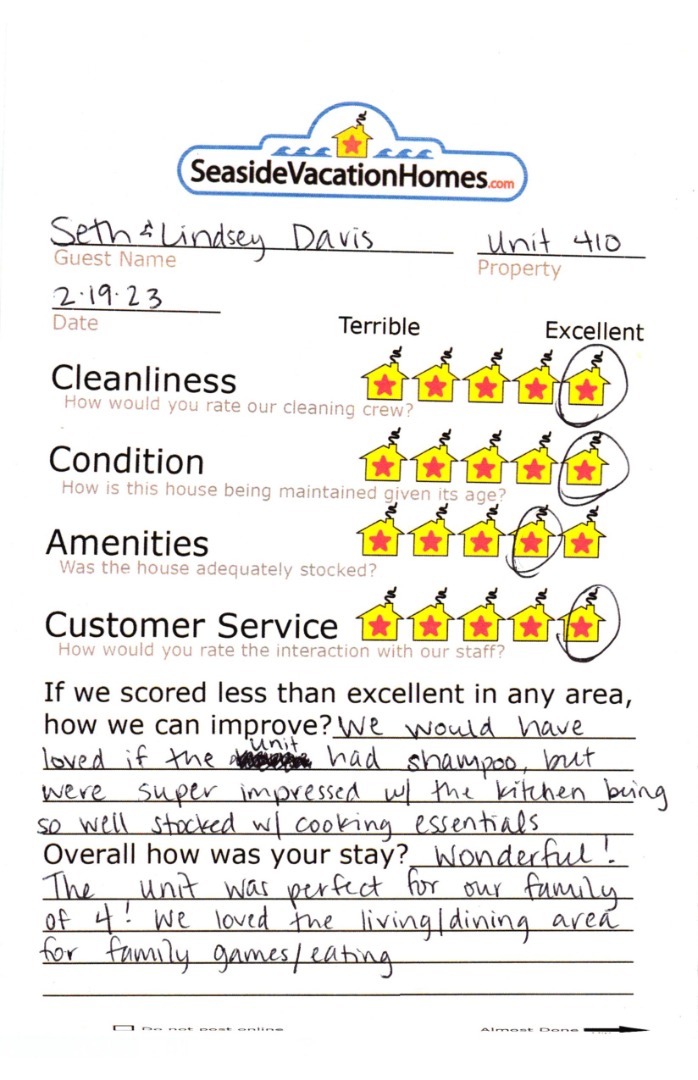 SeasideVacationHomes.com
Seth & Lindsey Davis Unit 410
Guest Name Property
2.19.23
Date
Terrible Excellent
Cleanliness
How would you rate our cleaning crew?
Condition
How is this house being maintained given its age?
Amenities
Was the house adequately stocked?
Customer Service
How would you rate the interaction with our staff?
If we scored less than excellent in any area,
how we can improve? We would have
loved if the unit had shampoo, but
were super impressed w/ the kitchen being
so well stocked w/ cooking essentials
Overall how was your stay? Wonderful!
The unit was perfect for our family
of 4! We loved the living/dining area
for family games/eating
Do not post online Almost Done